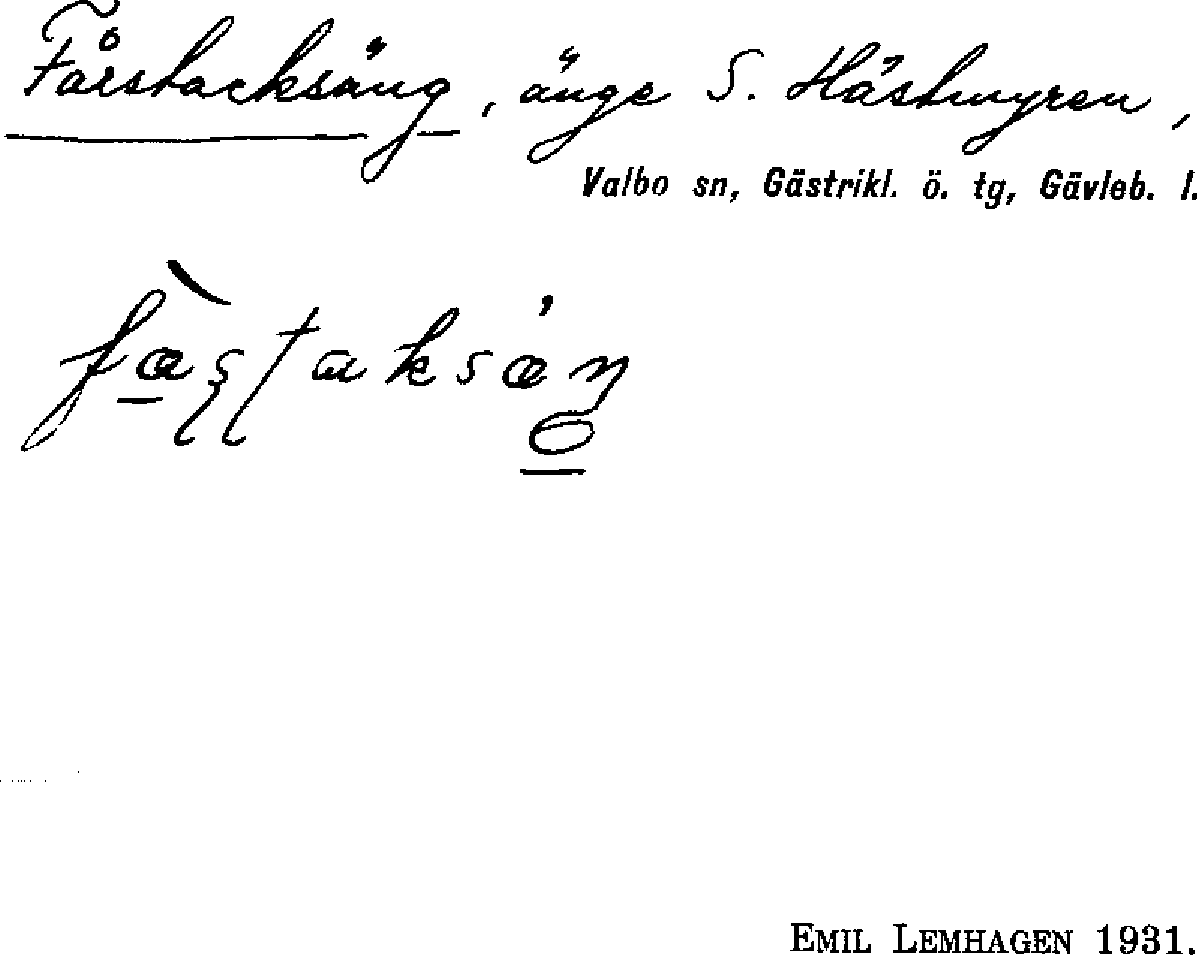 Fårstacksäng, änge S. Hästmyren,
Valbo sn, Gästrikl. ö. tg, Gävleb. l.
EMIL LEMHAGEN 1931.